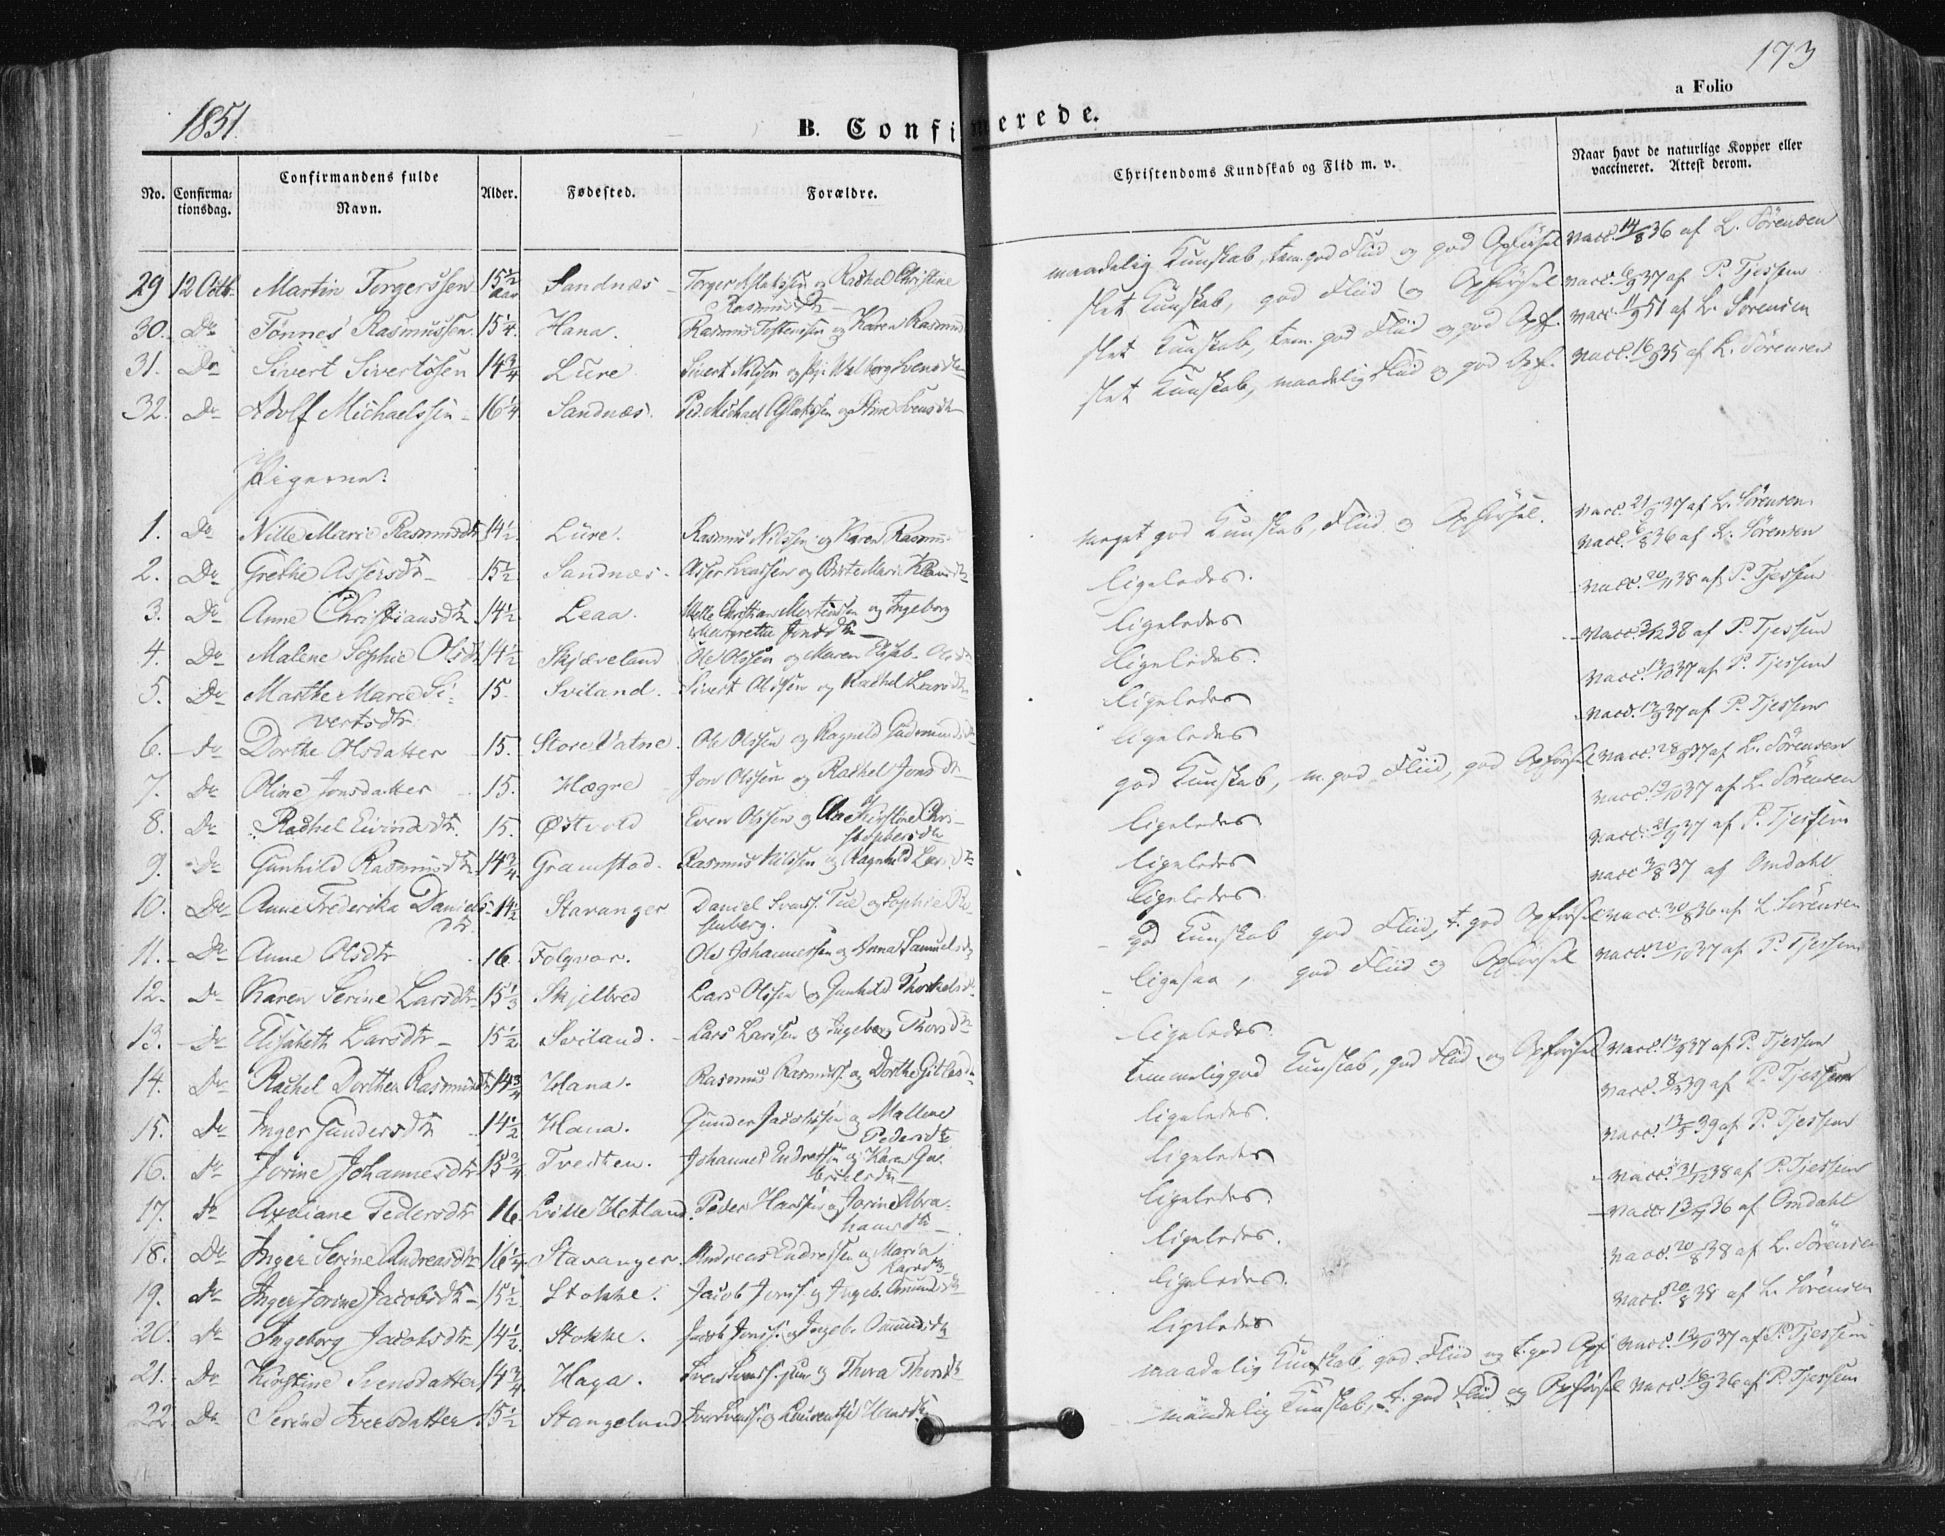 173
a Folio
1851.
B. Confirmerede.
No. Confirmationsdag. Confirmandens fulde Navn. Alder. Fødested. Forældre. Christendoms Kundskab og Flid m. v. Naar havt de naturlige Kopper eller vaccineret. Attest derom.
29 12 Octb. Martin Torgerssen 15 1/2 Aar Sandnæs Torger Aslakssen og Rachel Christine Rasmusdtr maadelig Kunskab, tem. god Fliid og god Opførsel vacc. 14/8 36 af L. Sørensen
30. Do Tønnes Rasmussen 15 1/4. Hana. Rasmus Tostenssen og Karen Rasmusd slet Kunskab, god Fliid og Opførsel vacc. 6/9 37 af P. Tjessem
31. Do Sivert Sivertssen 14 3/4 Lure. Sivert Nilssen og Walborg Svensdtr slet Kunskab, tem. god Fliid og god Opf. vacc. 11/9 51 af L. Sørensen
32. Do Adolf Michaelssen 16 1/4 Sandnæs. Ped. Michael Aslakssen og Stine Svensdtr slet Kunskab, maadelig Fliid og god Opf. vacc. 16/9 35 af L. Sørensen
Pigerne:
1. Do Nille Marie Rasmusdtr 14 1/2. Lure. Rasmus Nilssen og Karen Rasmus. meget god Kunskab, Fliid og Opførsel. vacc. 21/9 37 af L. Sørensen
2. Do Grethe Assersdtr 15 1/2 Sandnæs. Asser Svenssen og Birte Marie ligeledes. vacc. 6/8 36 af L. Sørensen
3. Do Anne Christiansdtr 14 1/2. Leaa. Christian Mortenssen og Ingeborg Margrethe Jonsdtr ligeledes vacc. 20/11 38 af P. Tjessem
4. Do Malene Sophie Olsdtr 14 1/2 Skjæveland Ole Olssen og Maren Elisab. Olsdtr ligeledes. vacc. 3/12 38 af P. Tjessem
5. Do Marthe Marie Sivertsdtr 15. Sviland. Sivert Olssen og Rachel Larsdtr ligeledes vacc. 12/10 37 af P. Tjessem
6. Do Dorthe Olsdatter 15. Store Vatne. Ole Olssen og Ragnild Gudmundsdtr ligeledes vacc. 12/9 37 af P. Tjessem
7. Do Oline Jonsdatter 15. Hægre Jon Olssen og Rachel Jonsdtr god Kunskab, m. god Fliid, god Opførsel vacc. 28/9 37 af L. Sørensen
8. Do Rachel Eivindsdtr 15. Østvold Even Olssen og Ane Kirstine Christophersdtr ligeledes vacc. 12/10 37 af L. Sørensen
9. Do Gunhild Rasmusdtr 14 3/4. Gramstad. Rasmus Nilssen og Ragnhild Larsdtr ligeledes vacc. 21/9 37 af P. Tjessem
10. Do Anne Frederika Danielsdtr 14 1/2 Stavanger Daniel Svenss. Tue og Sophie Rosenberg. ligeledes. vacc. 3/8 37 af Omdahl
11. Do Anne Olsdtr 16 Folqvar. Ole Johannessen og Anna Samuelsdtr god Kunskab god Fliid, t. god Opførsel vacc. 30/8 36 af L. Sørensen
12. Do Karen Serine Larsdtr 15 1/3 Skjelbred Lars Olssen og Gunhild Thorkelsdtr ligesaa, god Fliid og Opførsel vacc. 20/10 37 af P. Tjessem
13. Do Elisabeth Larsdtr 15 1/2 Sviland. Lars Larssen og Ingeborg Thorsdtr ligeledes. vacc. 12/9 37 af P. Tjessem
14. Do Rachel Dorthea Rasmusdtr 14 3/4 Hana. Rasmus Rasmuss. og Dorthe Gitlesdtr temmelig god Kunskab, god Fliid og Opførsel vacc. 8/3 39 af P. Tjessem
15. Do Inger Gundersdtr 14 1/2 Hana. Gunder Jacobssen og Mallene Pedersdtr ligeledes. vacc. 13/5 39 af P. Tjessem
16. Do Jorine Johannesdtr 15 3/4 Tvedten. Johannes Endressen og Karen ligeledes vacc. 31/12 38 af P. Tjessem
17. Do Axeliane Pedersdtr 16 Lille Hetland. Peder Hanssen og Jorine Abrahamsdtr ligeledes. vacc. 13/9 36 af Omdahl
18. Do Inger Serine Andreasdtr 16 1/4 Stavanger. Andreas Endressen og Maria Larsdtr ligeledes. vacc. 20/8 38 af L. Sørensen
19. Do Inger Jorine Jacobsdtr 15 1/2 Stokke. Jacob Jonss. og Ingeb. Omundsdtr ligeledes. vacc. 20/8 38 af L. Sørensen
20. Do Ingeborg Jacobsdtr 14 1/2. Stokke. Jacob Jonss. og Ingeb. Omundsdtr ligeledes vacc. 12/10 37 af P. Tjessem
21. Do Kirstine Svensdatter 14 3/4 Haga. Sven Svenss. og Thora Thorsdtr maadelig Kunskab, god Fliid og t. god Opf. vacc. 16/9 36 af P. Tjessem
22. Do Serine Iversdatter 15 1/2 Stangeland Iver Svenss. og Laurentse Hansdtr maadelig Kunskab, t. god Fliid og Opførsel